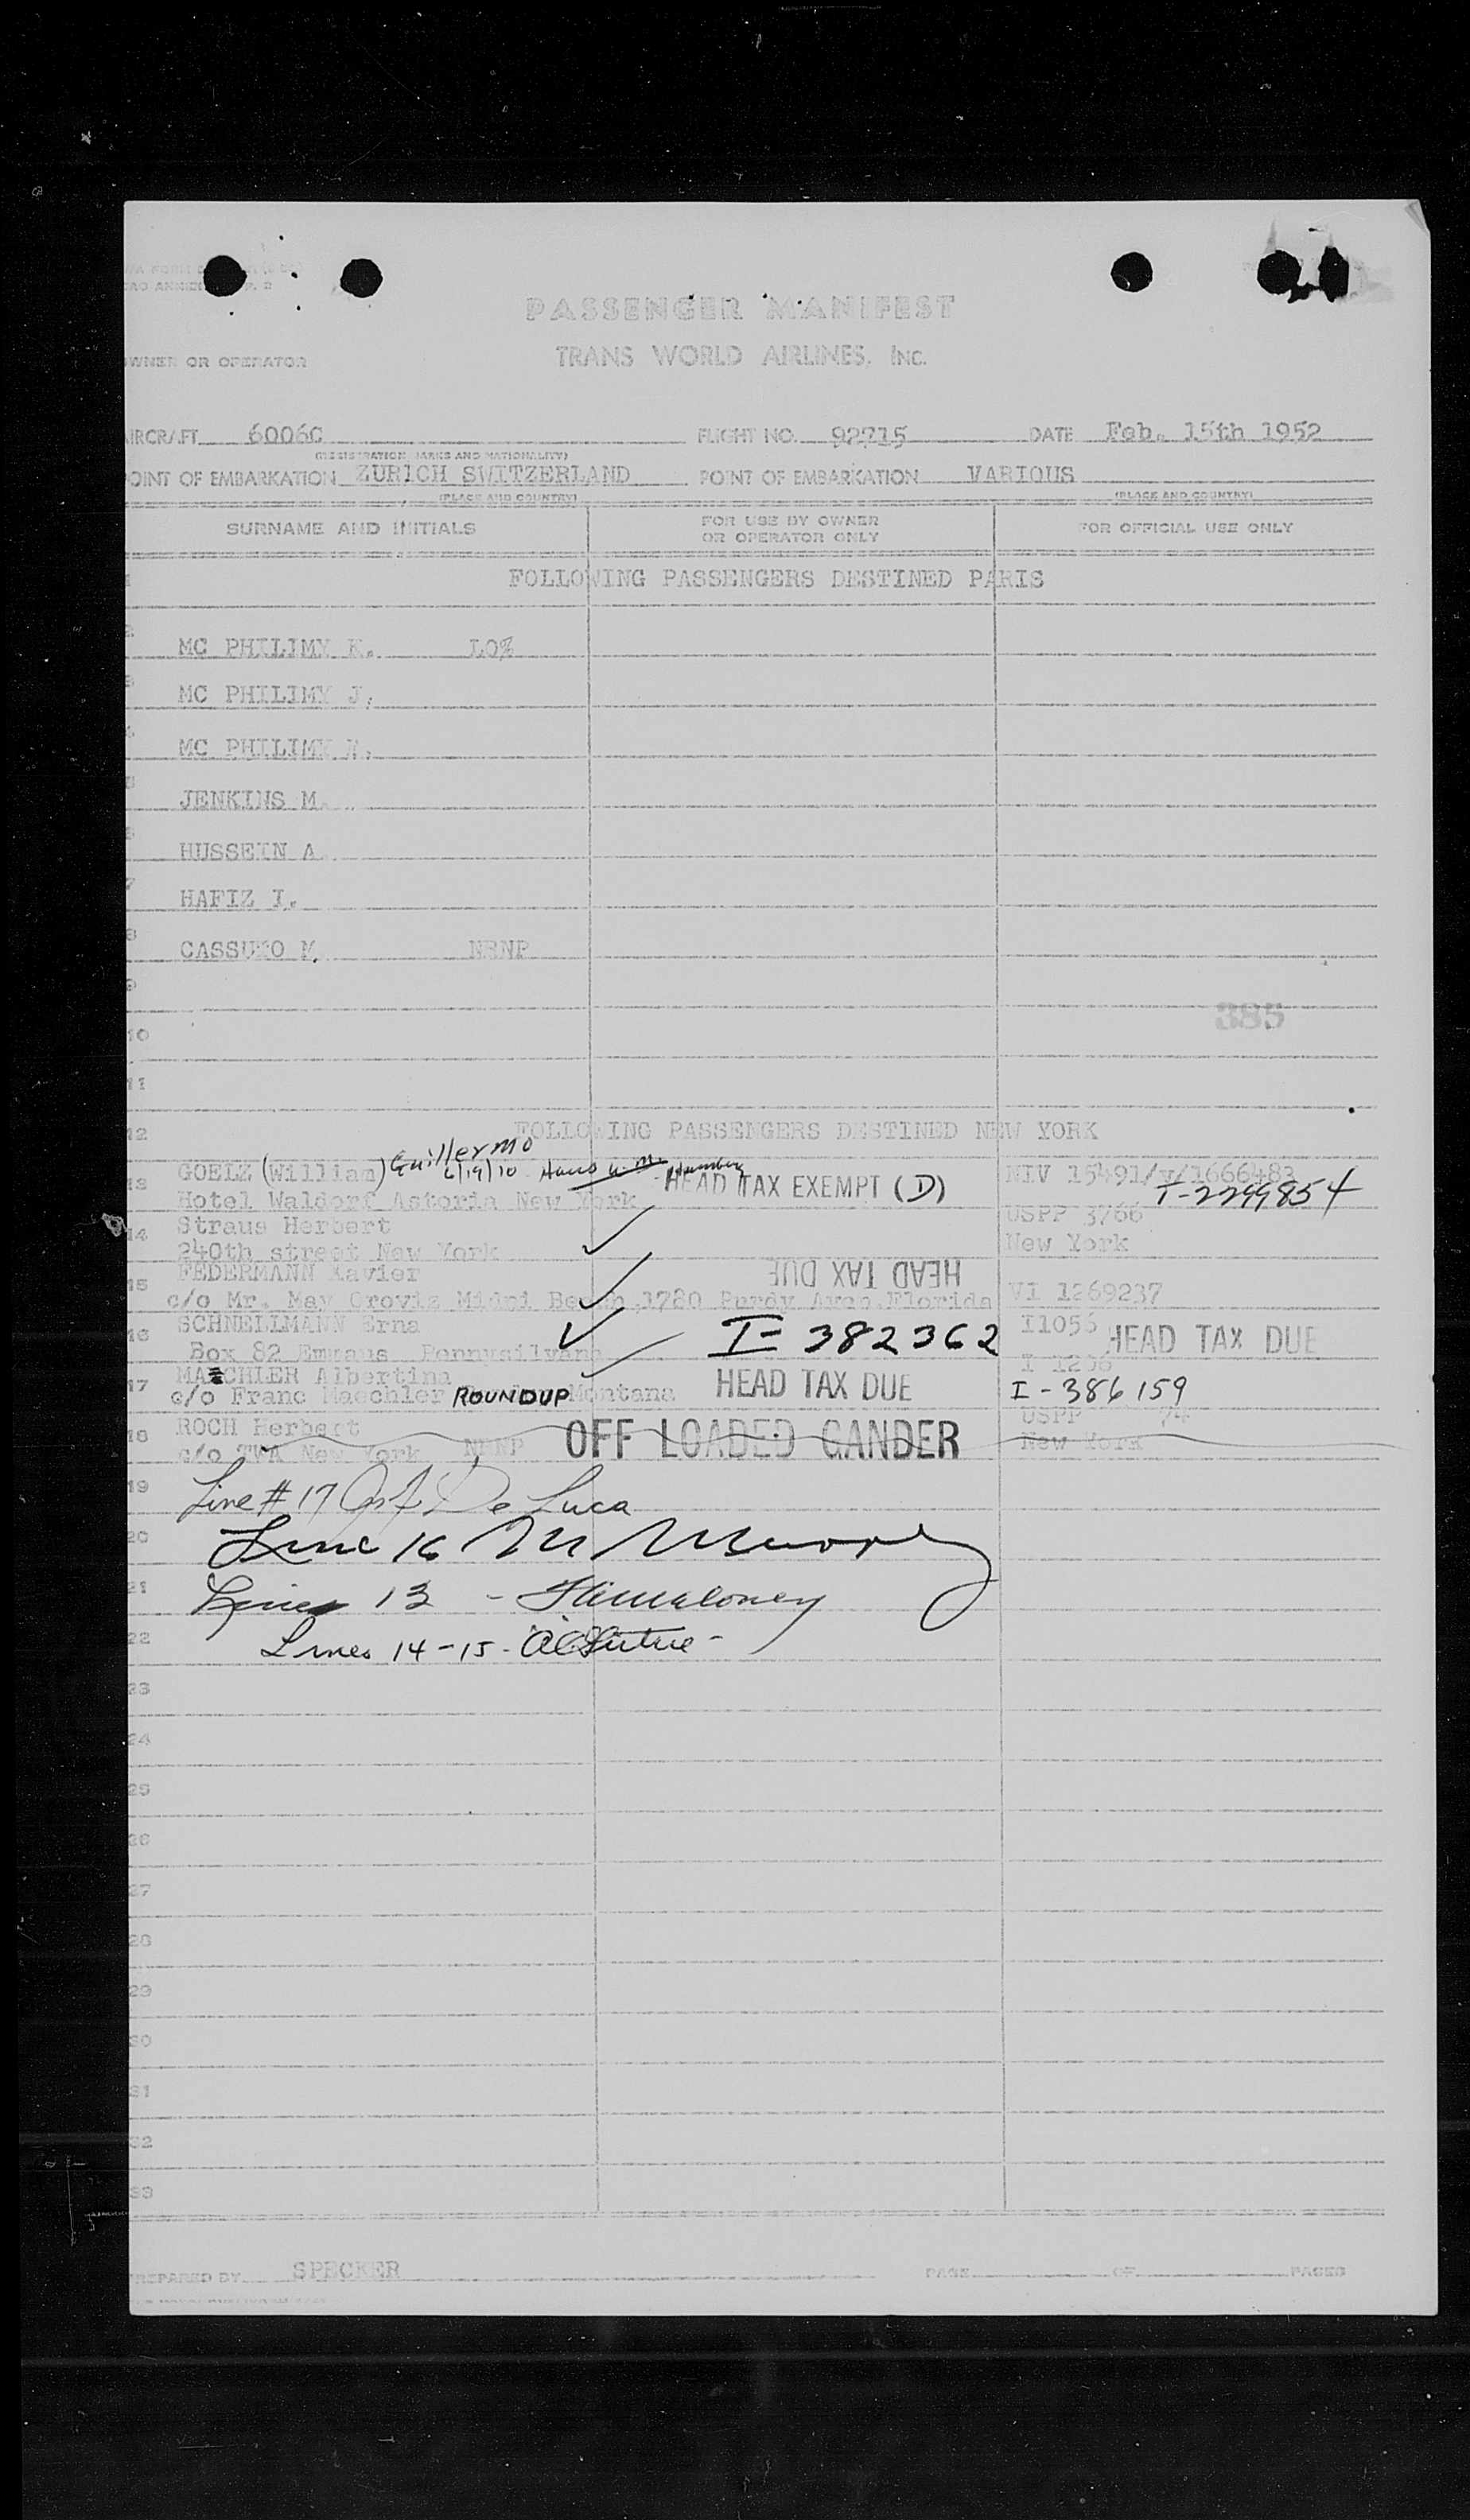 PASSENGER MANIFEST
WNER OR OPERATOR
TRANS WORLD AIRLINES, INC.
IRCRAFT 6006C FLIGHT NO. 92715 DATE Feb. 15th 1952
(REGISTRATION MARKS AND NATIONALITY)
OINT OF EMBARKATION ZURICH SWITZERLAND POINT OF EMBARKATION VARIOUS
(PLACE AND COUNTRY) (PLACE AND COUNTRY)
SURNAME AND INITIALS FOR USE BY OWNER OR OPERATOR ONLY FOR OFFICIAL USE ONLY
FOLLOWING PASSENGERS DESTINED PARIS
MC PHILIMY K. LO%
MC PHILIMY J.
MC PHILIMY
JENKINS M.
HUSSEIN A
HAFIZ I.
8 CASSUTO M. NRNP
9
385
10
11
12 FOLLOWING PASSENGERS DESTINED NEW YORK
Guillermo
13 GOELZ (William) 6/19/10 HEAD TAX EXEMPT (D) NIV 15491/v/1666483
Hotel Waldorf Astoria New York T-2299854
14 Straus Herbert USPP 3766
240th street New York New York
15 FEDERMANN Xavier HEAD TAX DUE
c/o Mr. May Oroviz Midmi Beach, 1720 Purdy Ave. Florida VI 1269237
16 SCHNELLMANN Erna I-382362 I1056 HEAD TAX DUE
Box 82 Emmaus Pennysilvana
17 MAECHLER Albertina HEAD TAX DUE I 1236
c/o Franc Maechler ROUNDUP Montana I-386159
18 ROCH Herbert OFF LOADED GANDER USPP 74
c/o TWA New York NRNP New York
19 Line # 17 De Luca
20 Line 16 M
21 Lines 13 -
22 Lines 14-15-
23
24
25
26
27
28
29
30
31
32
33
REPARED BY SPECKER PAGE OF PAGES